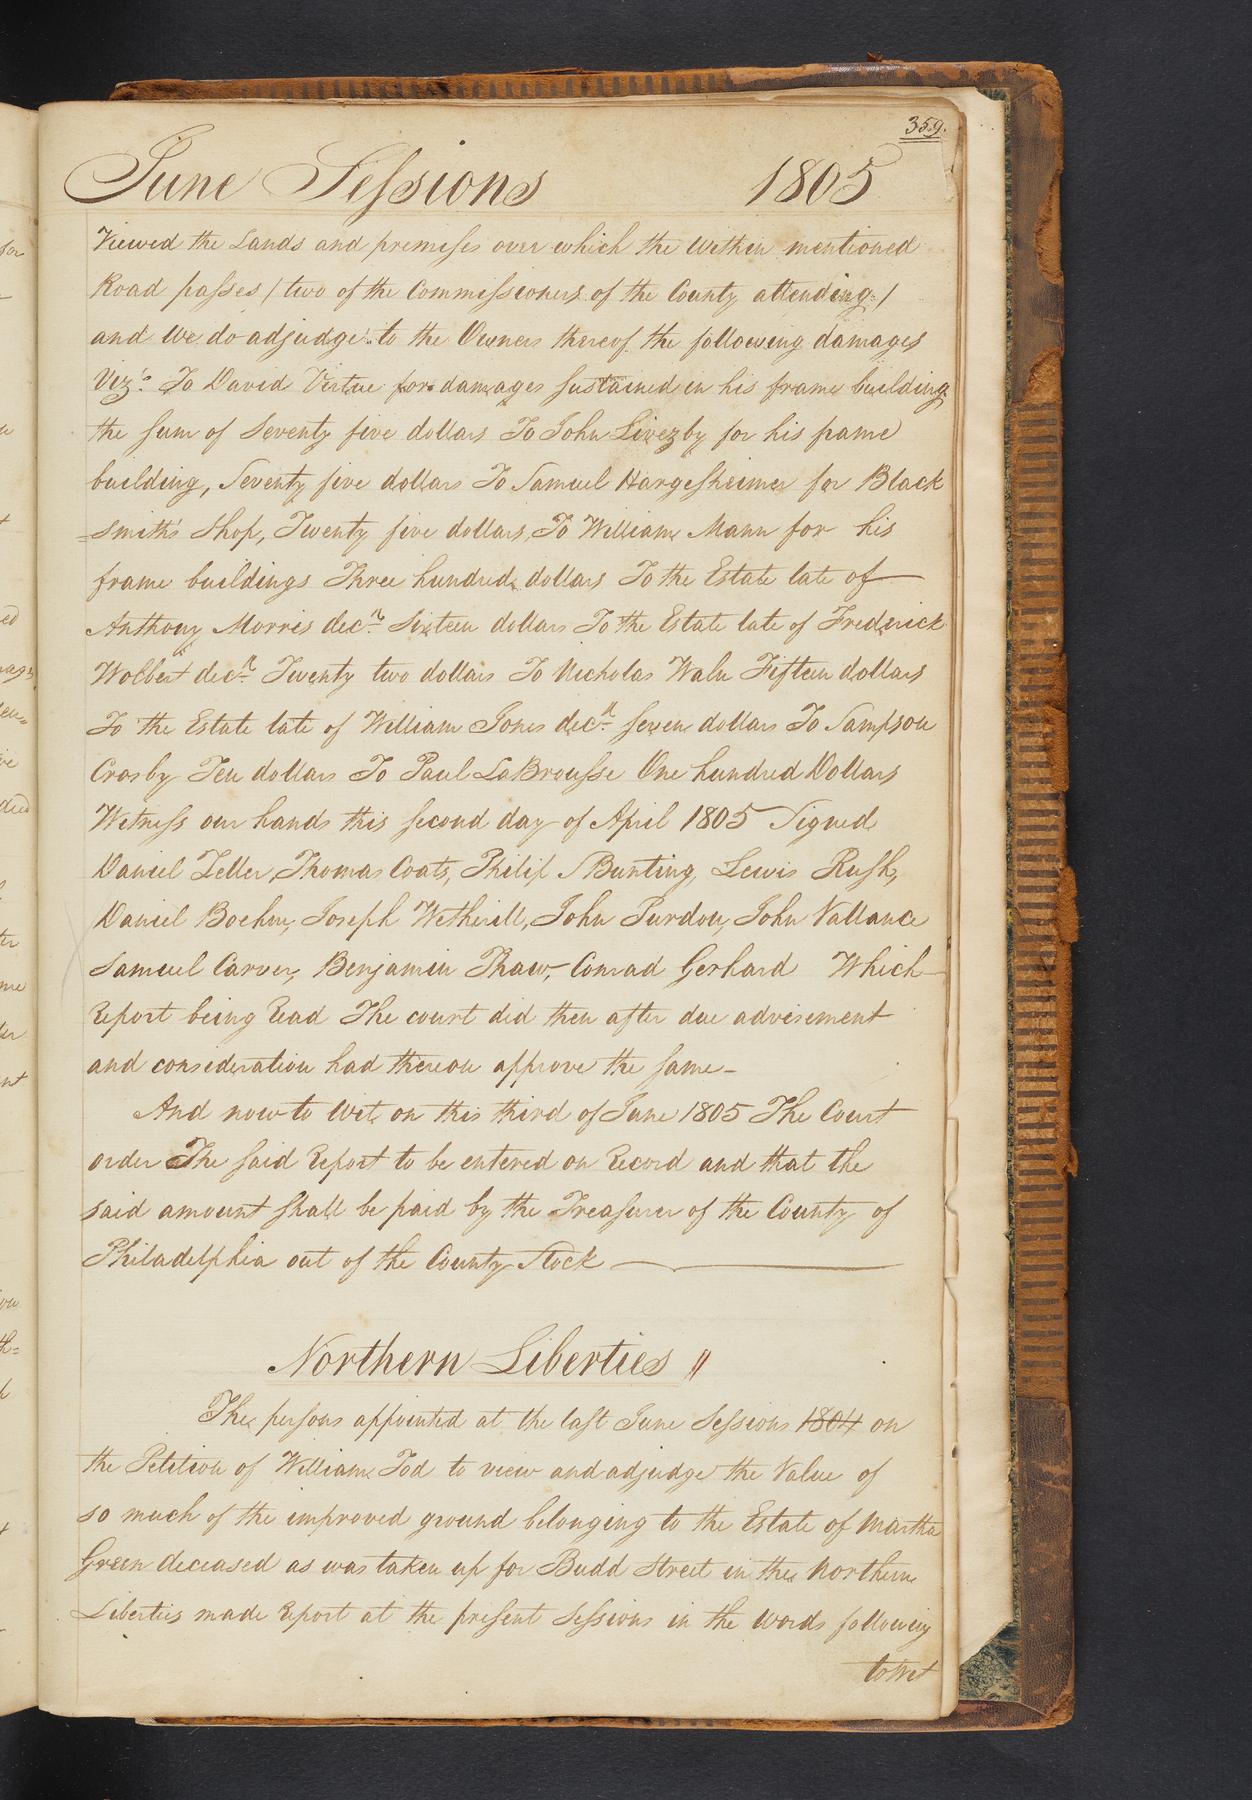 359.
June Sessions 1805
Viewed the Lands and premises over which the within mentioned
Road passes / two of the Commissioners of the County attending /
and we do adjudge to the Owners thereof the following damages
Viz.t To David Virtue for damages sustained in his frame building
the sum of Seventy five dollars To John Livezby for his frame
building, Seventy five dollars To Samuel Hargesheimer for Black
=smith's Shop, Twenty five dollars, To William Mann for his
frame buildings Three hundred dollars To the Estate late of
Anthony Morris dec.d Sixteen dollars To the Estate late of Frederick
Wolbert dec.d Twenty two dollars To Nicholas Waln Fifteen dollars
To the Estate late of William Jones dec.d seven dollars To Sampson
Crosby Ten dollars To Paul LaBrousse One hundred Dollars
Witness our hands this second day of April 1805 Signed
Daniel Teller, Thomas Coats, Philip S Bunting, Lewis Rush,
Daniel Boehm, Joseph Wetherill, John Purdon, John Vallance
Samuel Carver, Benjamin Thaw, Conrad Gerhard Which
Report being Read The court did then after due advisement
and consideration had thereon approve the same –
And now to Wit, on this third of June 1805 The Court
order The said Report to be entered on Record and that the
said amount shall be paid by the Treasurer of the County of
Philadelphia out of the County Stock
Northern Liberties "
The persons appointed at the last June Sessions 1804 on
the Petition of William Tod to view and adjudge the Value of
so much of the improved ground belonging to the Estate of Martha
Green deceased as was taken up for Budd Street in the Northern
Liberties made Report at the present Sessions in the words following
to Wit